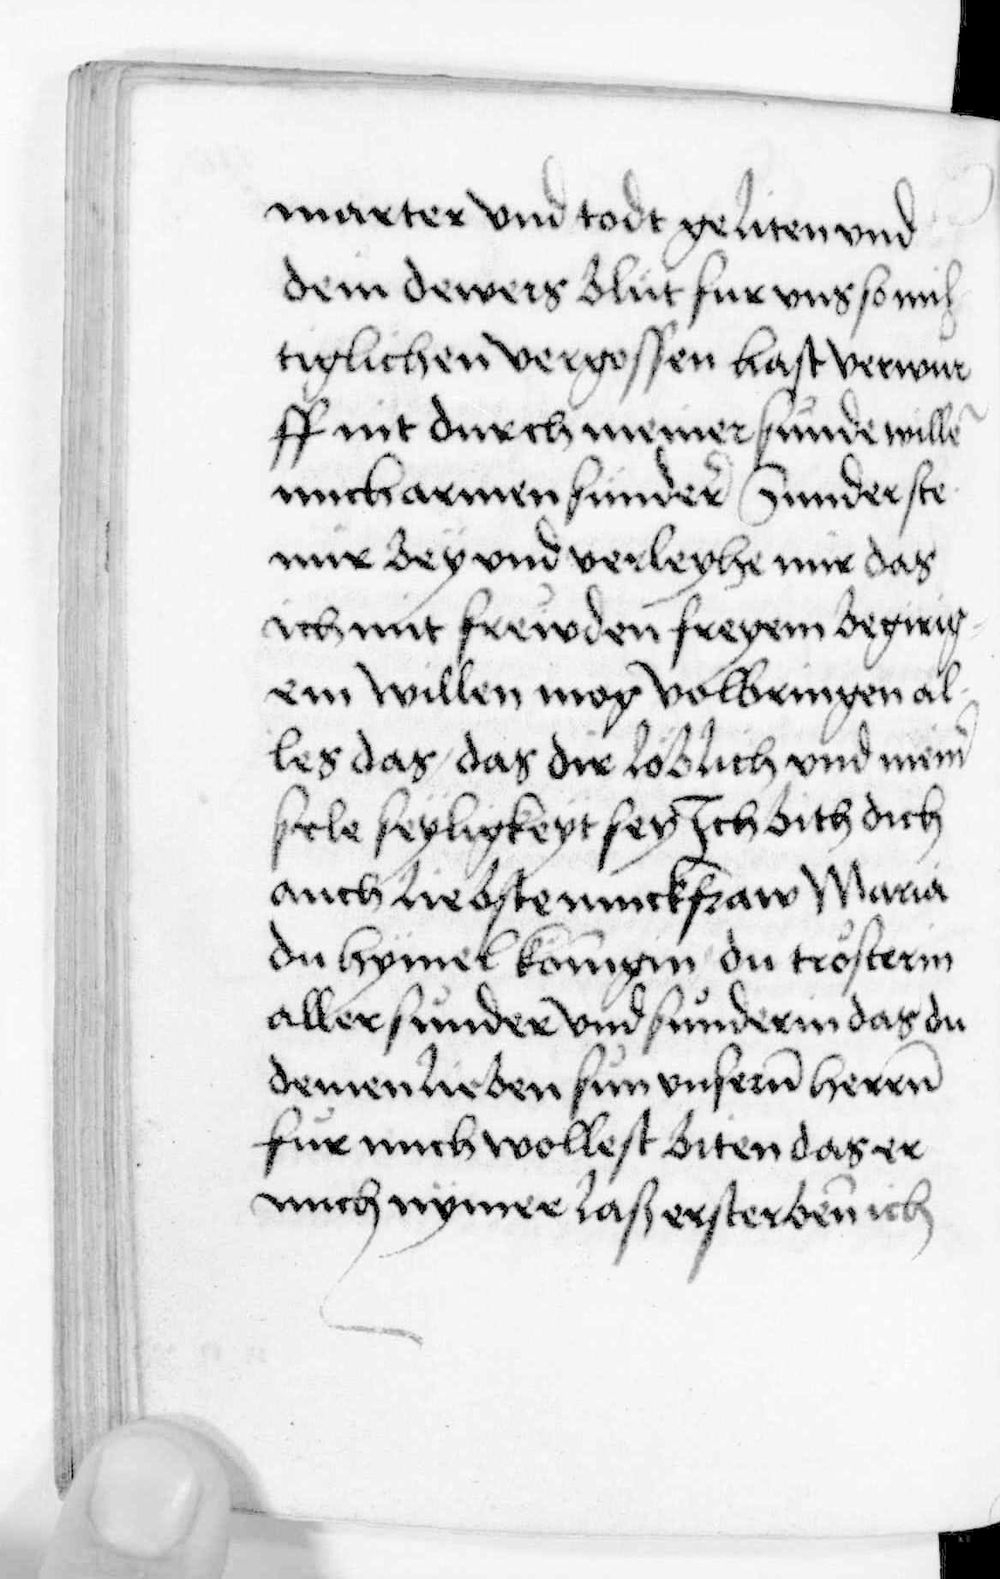 marter vnd todt geliten vnd
dein dewers blut fur vns so mil
tiglichen vergossen hast verwur
ff nit durch meiner sunde willē
mich armen sunder Sunder ste
mir bey vnd verleyhe mir das
ich mit frewden freyem begirig-
em willen mög volbringen al-
les das / das dir löblich vnd meinr
sele seyligkeyt sey Ich bith dich
auch liebste iunckfraw Maria
du hymel königin / du trösterin
aller sunder vnd sunderin das du
deinen lieben sun vnsern̄ herrn̄
fur mich wollest biten das er
mich nymer laß ersterben̄ ich